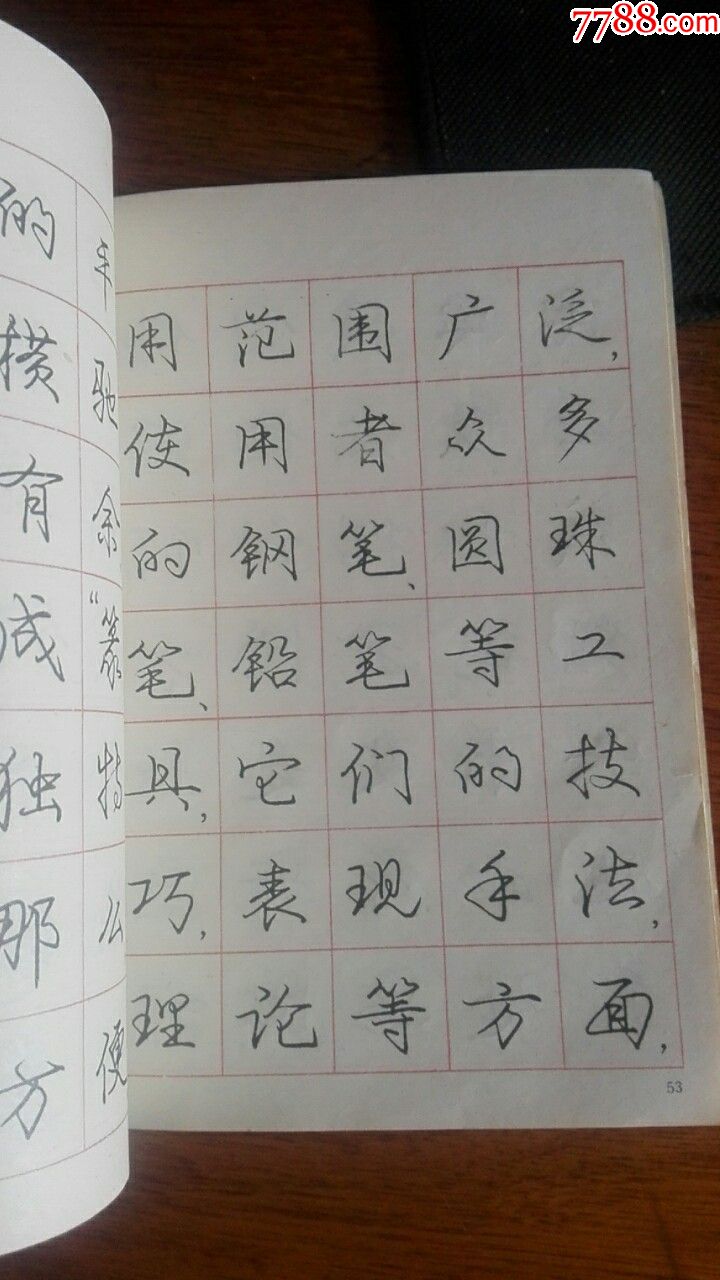 7788.com
的年
横驰
有余
成"篆
独特
那么
方便
用范围广泛,
使用者众多
的钢笔、圆珠
笔、铅笔等工
具,它们的技
巧,表现手法,
理论等方面,
53